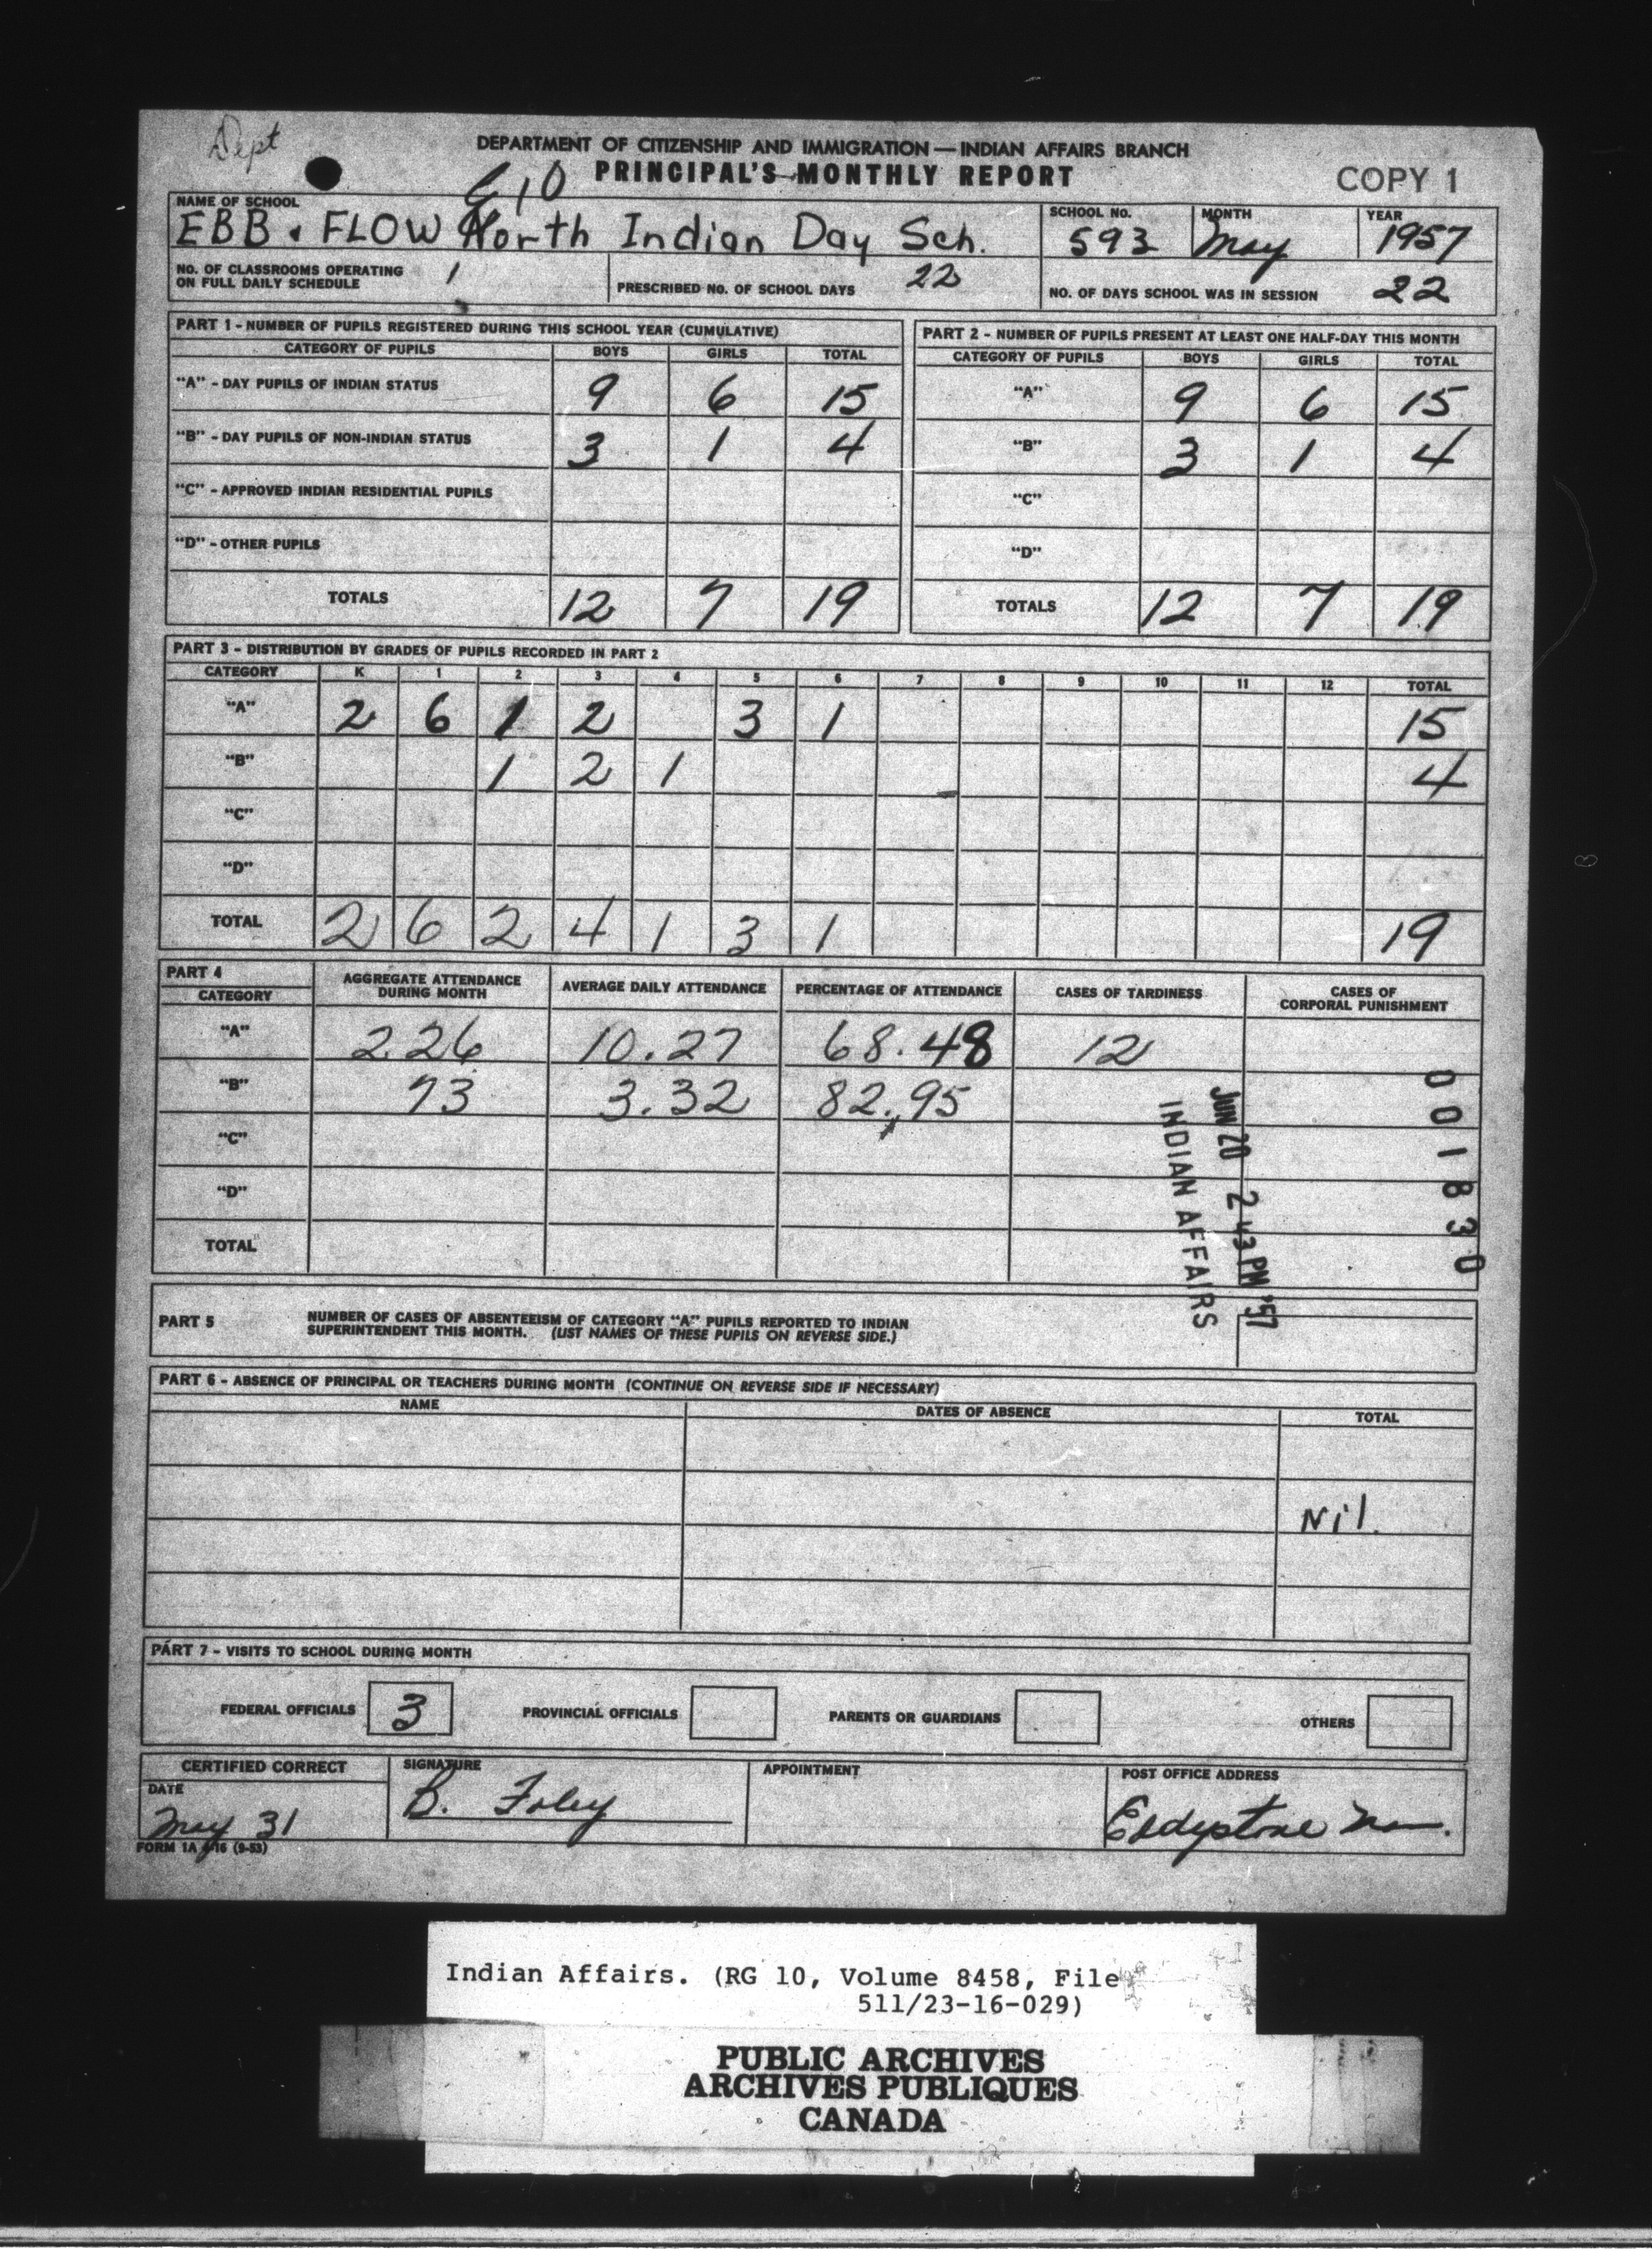 Dept
DEPARTMENT OF CITIZENSHIP AND IMMIGRATION — INDIAN AFFAIRS BRANCH
PRINCIPAL'S MONTHLY REPORT
COPY 1
NAME OF SCHOOL
EBB & FLOW North Indian Day Sch.
SCHOOL NO.
593
MONTH
May
YEAR
1957
NO. OF CLASSROOMS OPERATING
ON FULL DAILY SCHEDULE 1
PRESCRIBED NO. OF SCHOOL DAYS 22
NO. OF DAYS SCHOOL WAS IN SESSION 22
PART 1 - NUMBER OF PUPILS REGISTERED DURING THIS SCHOOL YEAR (CUMULATIVE)
CATEGORY OF PUPILS BOYS GIRLS TOTAL
"A" - DAY PUPILS OF INDIAN STATUS 9 6 15
"B" - DAY PUPILS OF NON-INDIAN STATUS 3 1 4
"C" - APPROVED INDIAN RESIDENTIAL PUPILS
"D" - OTHER PUPILS
TOTALS 12 7 19
PART 2 - NUMBER OF PUPILS PRESENT AT LEAST ONE HALF-DAY THIS MONTH
CATEGORY OF PUPILS BOYS GIRLS TOTAL
"A" 9 6 15
"B" 3 1 4
"C"
"D"
TOTALS 12 7 19
PART 3 - DISTRIBUTION BY GRADES OF PUPILS RECORDED IN PART 2
CATEGORY K 1 2 3 4 5 6 7 8 9 10 11 12 TOTAL
"A" 2 6 1 2 3 1 15
"B" 1 2 1 4
"C"
"D"
TOTAL 2 6 2 4 1 3 1 19
PART 4
CATEGORY
AGGREGATE ATTENDANCE
DURING MONTH
AVERAGE DAILY ATTENDANCE
PERCENTAGE OF ATTENDANCE
CASES OF TARDINESS
CASES OF
CORPORAL PUNISHMENT
"A" 226 10.27 68.48 12
"B" 73 3.32 82.95
"C"
"D"
TOTAL
INDIAN AFFAIRS
JUN 20 2 43 PM '57
001830
PART 5
NUMBER OF CASES OF ABSENTEEISM OF CATEGORY "A" PUPILS REPORTED TO INDIAN
SUPERINTENDENT THIS MONTH. (LIST NAMES OF THESE PUPILS ON REVERSE SIDE.)
PART 6 - ABSENCE OF PRINCIPAL OR TEACHERS DURING MONTH (CONTINUE ON REVERSE SIDE IF NECESSARY)
NAME DATES OF ABSENCE TOTAL
Nil.
PART 7 - VISITS TO SCHOOL DURING MONTH
FEDERAL OFFICIALS 3 PROVINCIAL OFFICIALS PARENTS OR GUARDIANS OTHERS
CERTIFIED CORRECT
DATE
May 31
SIGNATURE
B. Foley
APPOINTMENT
POST OFFICE ADDRESS
Eddystone Man.
FORM 1A 4-16 (9-53)
Indian Affairs. (RG 10, Volume 8458, File
511/23-16-029)
PUBLIC ARCHIVES
ARCHIVES PUBLIQUES
CANADA